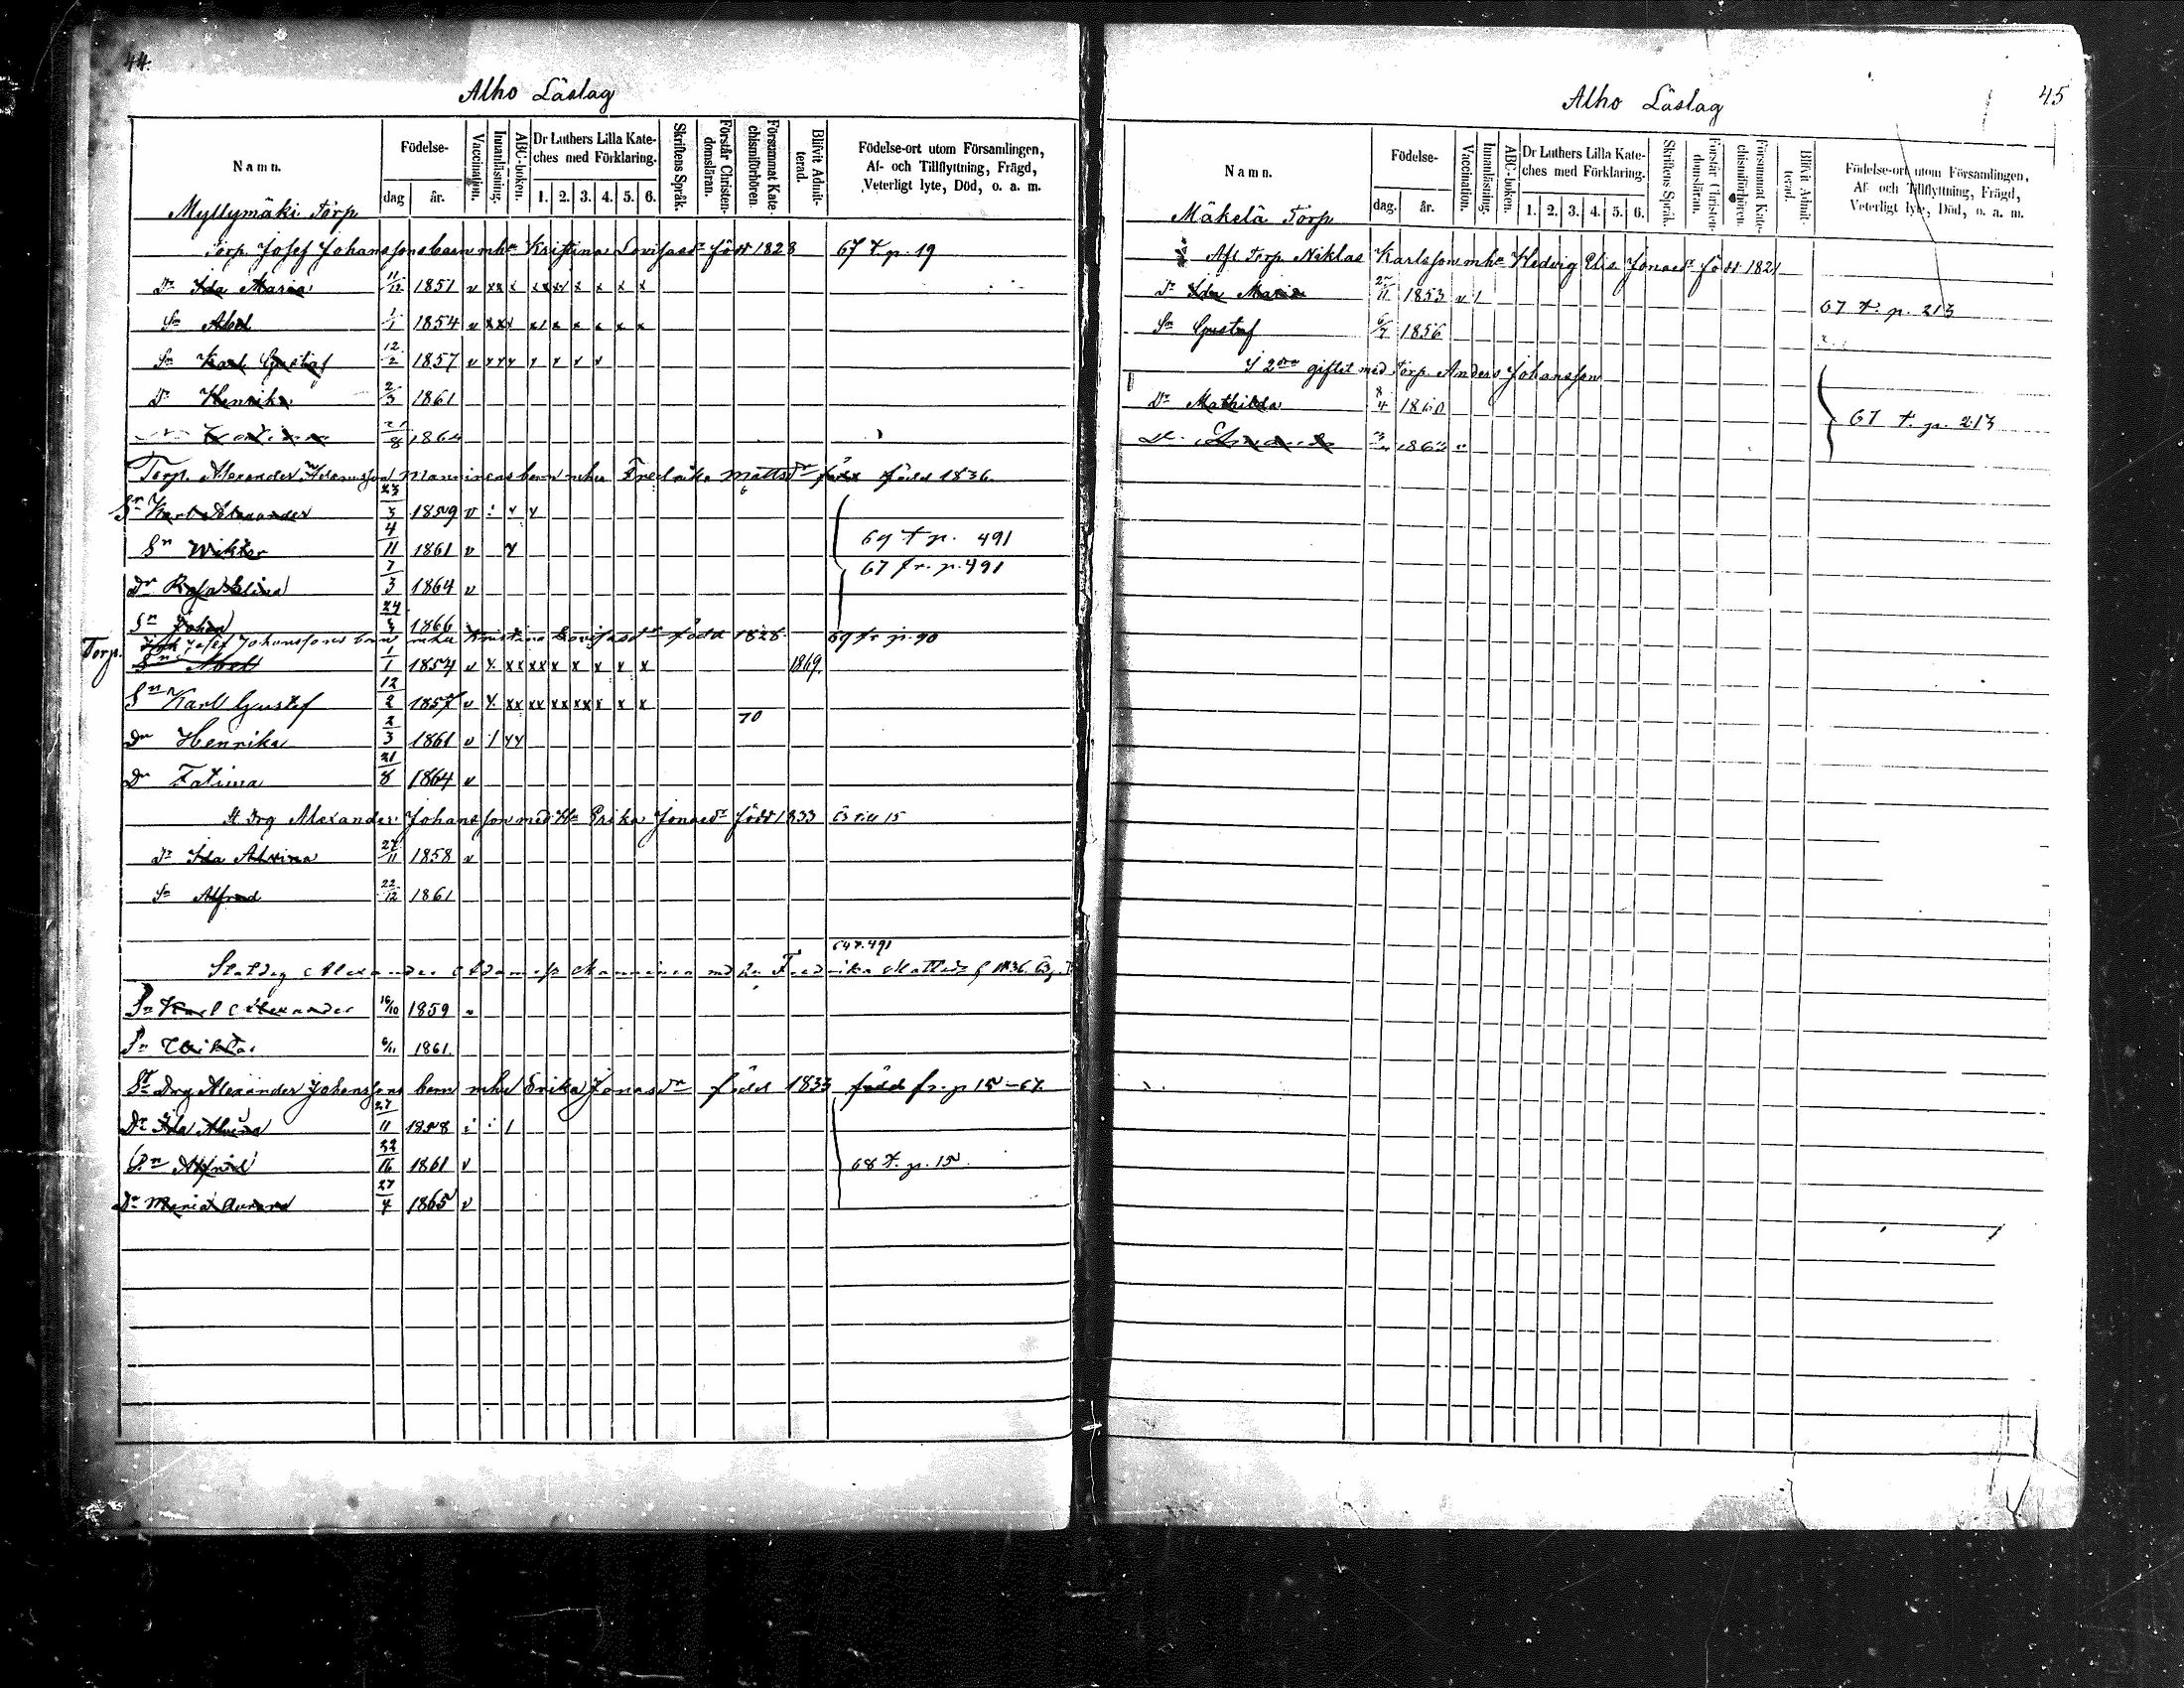 44.
Alho Läslag
Namn.
Födelse-
dag
år.
Vaccination.
Innanläsning.
ABC-boken.
Dr Luthers Lilla Kate-
ches med Förklaring.
1. 2. 3. 4. 5. 6.
Skriftens Språk.
Förstår Christen-
domsläran.
Försummat Kate-
chismiförhören.
Blifvit Admit-
terad.
Födelse-ort utom Församlingen,
Af- och Tillflyttning, Frägd,
Veterligt lyte, Död, o. a. m.
Myllymäki Torp
Torp. Josef Johanssons barn mhu Kristina Lovisasdr född 1828 67 t. p. 19
Dr Ida Maria 11/12 1851 v xx x xx x x x x x
Sn Abel 1/1 1854 v
Sn Karl Gustaf 12/2 1857 v
Dr Henrika 2/3 1861
21/8 1864
Torp. Alexander Adamsson Manninens barn mhu Fredrika Mattsdr född 1836.
Sn Karl Alexander 23/3 1859 v
Sn Wiktor 4/11 1861 v
69 t p. 491
67 fr. p. 491
Dr 7/3 1864 v
Sn Johan 1866
Torp. Josef Johanssons barn mhu Kristina Lovisasdr född 1828 69 fr. p. 90
Sn Abel 1/1 1854 v x xx xx x x x x x 1869.
Sn Karl Gustaf 12/2 1857 v x xx xx xx xx x x x
70
Dr Henrika 2/3 1861 v
Dr Fatima 21/8 1864 v
St Drg Alexander Johansson med Hu Erika Jonasdr född 1833
Dr Ida Alvina 27/11 1858 v
Sn Alfred 22/12 1861
64 t. 491
Statdrg Alexander Adamss Manninen md hu Fredrika Mattsdr f 1836.
Sn Karl Alexander 16/10 1859
Sn Wiktor 6/11 1861.
St Drg Alexander Johanssons barn mhu Erika Jonasdr född 1833 född fr. p 15-67.
Dr Ida Alvina 27/11 1858
Sn Alfred 1861 v 68 t. p. 15.
Dr Maria Aurora 27/4 1865 v
45
Alho Läslag
Namn.
Födelse-
dag.
år.
Vaccination.
Innanläsning.
ABC-boken.
Dr Luthers Lilla Kate-
ches med Förklaring.
1. 2. 3. 4. 5. 6.
Skriftens Språk.
Förstår Christen-
domsläran.
Försummat Kate-
chismiförhören.
Blifvit Admit-
terad.
Födelse-ort utom Församlingen,
Af- och Tillflyttning, Frägd,
Veterligt lyte, Död, o. a. m.
Mäkelä Torp
Afl Torp Niklas Karlsson mhu Hedvig Elis. Jonasdr född 1821
Dr Ida Maria 1853 v
67 t. p. 213
Sn Gustaf 1856
I 2dra giftet med Torp. Anders Johansson
Dr Mathilda 8/4 1860
67 t. p. 213